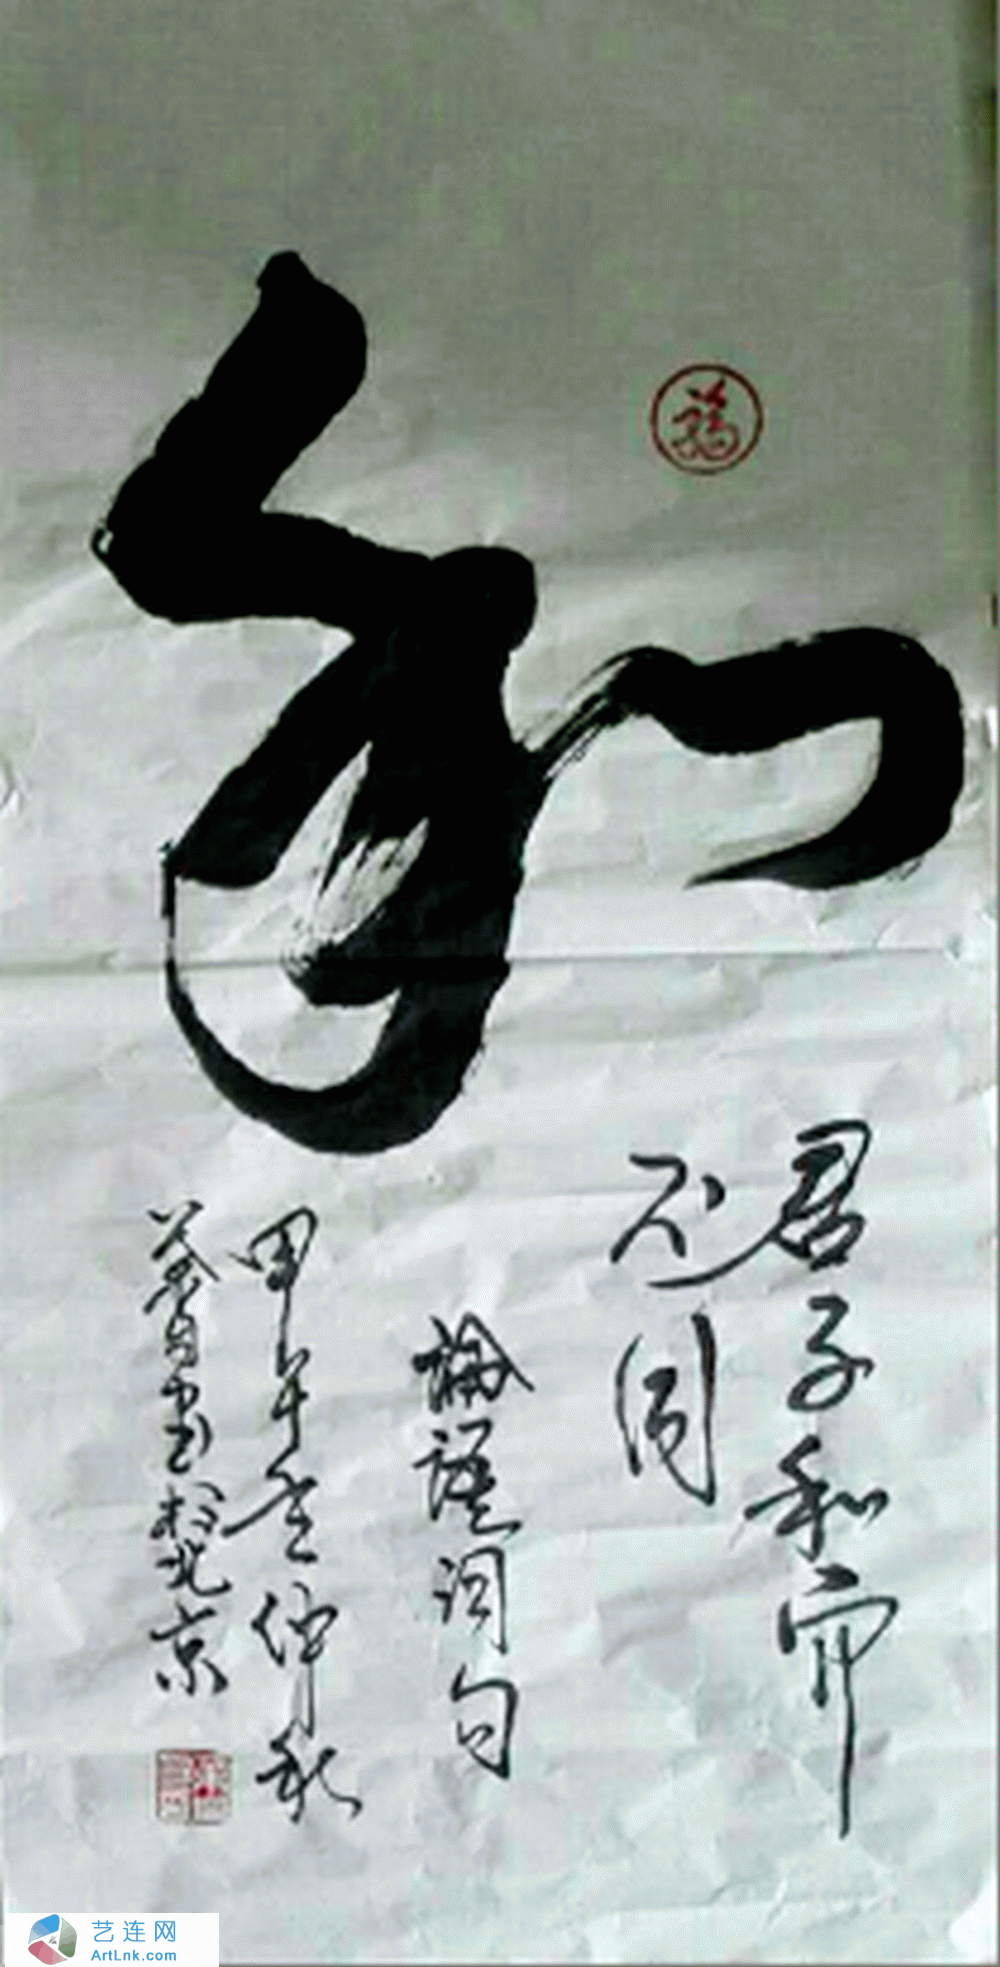 和
福
君子和而
不同
論語词句
甲午年仲秋
书於北京
艺连网
ArtLnk.com